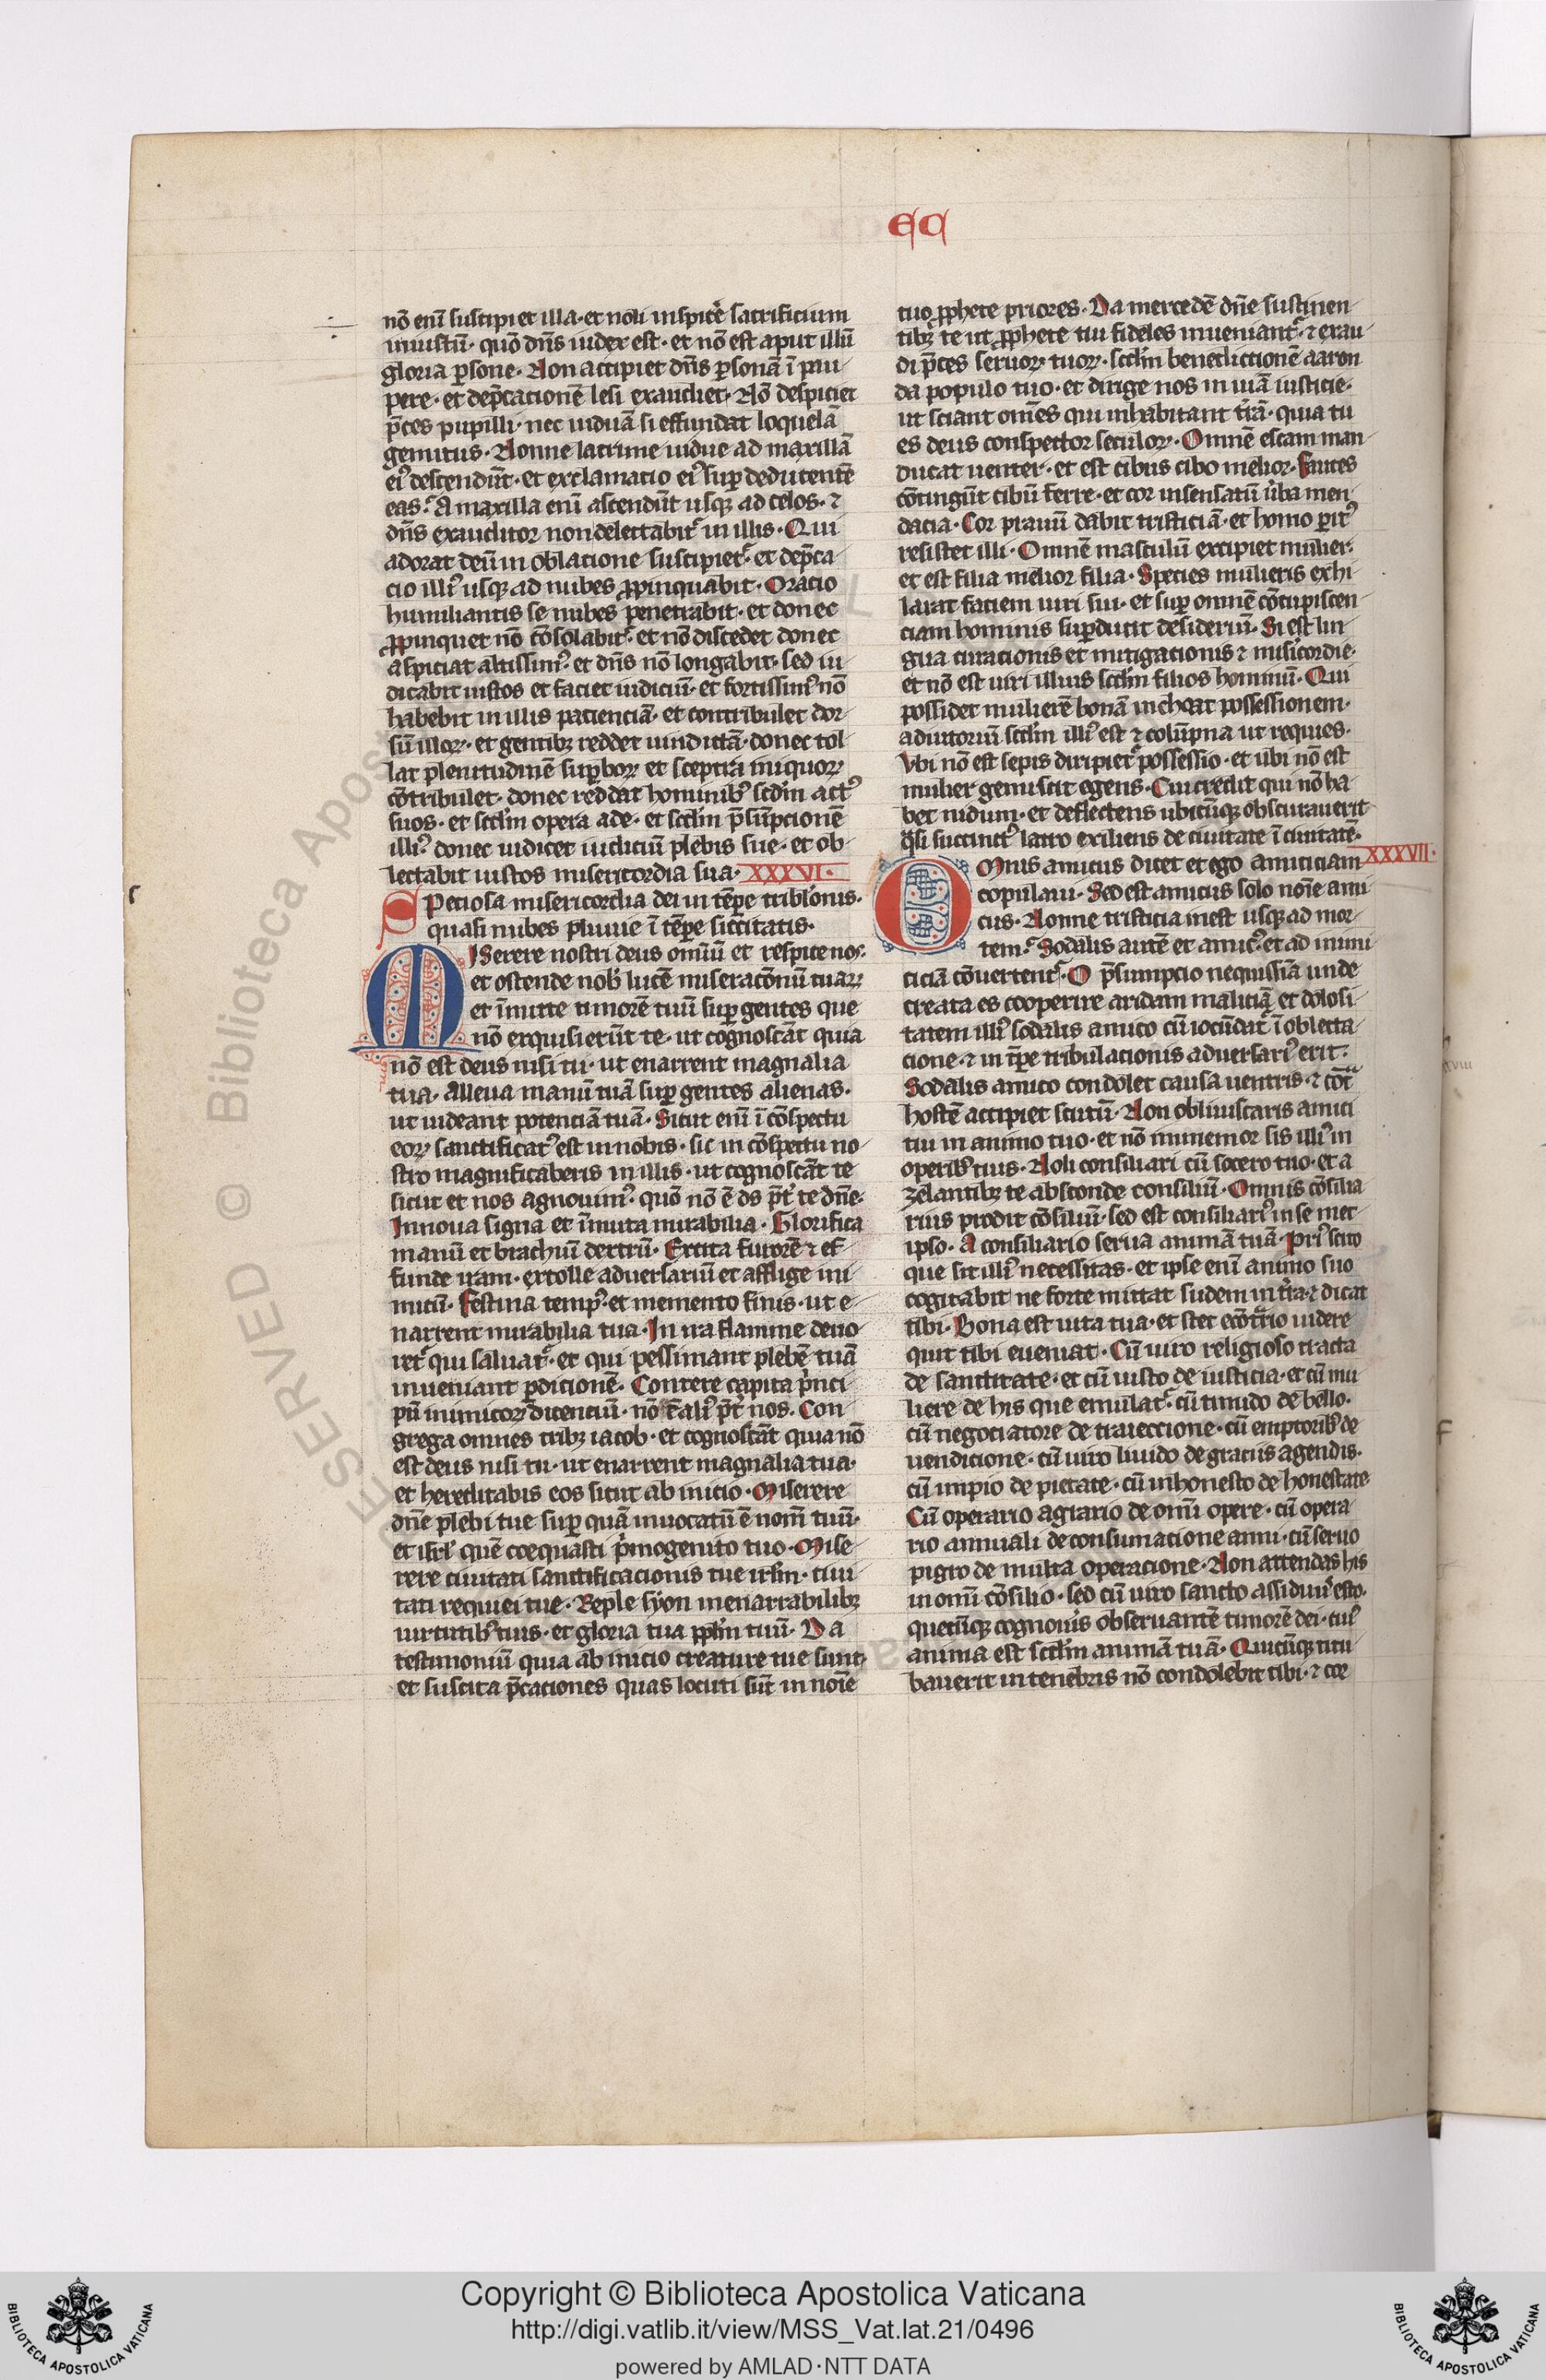 ec
nō enī suscipiet illa · et noli inspicẽ sacrificium
iniustū · quō dn̄s iudex est · et nō est aput illū
gloria ꝑsone · Non accipiet dn̄s ꝑsonā ī pau
pere · et dep̄cacionē lesi exaudiet · Nō despiciet
p̄ces pupilli · nec uiduā si effundat loquelā
gemitus · Nonne lacrime uidue ad maxillā
eiꝰ descendūt · et exclamacio eiꝰ suꝑ deducentē
eas · A maxilla enī ascendūt usqꝫ ad celos · ⁊
dn̄s exauditor non delectabit᷑ in illis · Qui
adorat deū in oblacione suscipiet᷑ · et dep̄ca
cio illiꝰ usqꝫ ad nubes ꝓpinquabit · Oracio
humiliantis se nubes penetrabit · et donec
ꝓpinquet nō cōsolabit᷑ · et nō discedet donec
aspiciat altissimꝰ · et dn̄s nō longabit · sed iu
dicabit iustos et faciet iudiciū · et fortissimꝰ nō
habebit in illis pacienciā · et contribulet dor
sū illoꝝ · et gentibꝫ reddet uindictā · donec tol
lat plenitudinē suꝑboꝝ et sceptra iniquoꝝ
cōtribulet · donec reddat hominibꝰ scd̄m actꝰ
suos · et scd̄m opera ade · et scd̄m p̄sūpcionē
illiꝰ donec iudicet iudiciū plebis sue · et ob
lectabit iustos misericordia sua · XXXVI ·
Speciosa misericordia dei in tēpe tribl̄onis ·
quasi nubes pluuie ī tēpe siccitatis ·
MIserere nostri deus om̄iū et respice nos ·
et ostende nob̄ lucē miseracōnū tuaꝝ
et īmitte timorē tuū suꝑ gentes que
nō exquisierūt te · ut cognoscāt quia
nō est deus nisi tu · ut enarrent magnalia
tua · Alleua manū tuā suꝑ gentes alienas ·
ut uideant potenciā tuā · Sicut enī ī cōspectu
eoꝝ sanctificatꝰ est in nobis · sic in cōspectu no
stro magnificaberis in illis · ut cognoscāt te
sicut et nos agnouimꝰ · quō nō ē ds p̄t̉ te dn̄e ·
Innoua signa et īmuta mirabilia · Glorifica
manū et brachiū dextrū · Excita furorē ⁊ ef
funde iram · extolle aduersariū et afflige ini
micū · Festina tempꝰ · et memento finis · ut e
narrent mirabilia tua · In ira flamme deuo
ret᷑ qui saluat᷑ · et qui pessimant plebē tuā
inueniant ꝑdicionē · Contere capita p̉nci
pū inimicoꝝ dicenciū · nō ē aliꝰ p̄t̉ nos · Con
grega omnes tribꝫ iacob · et cognoscāt quia nō
est deus nisi tu · ut enarrent magnalia tua ·
et hereditabis eos sicut ab inicio · Miserere
dn̄e plebi tue suꝑ quā inuocatū ē nom̄ tuū ·
et isrl̓ quē coequasti p̉mogenito tuo · Mise
rere ciuitati sanctificacionis tue irl̄m · ciui
tati requiei tue · Reple syon inenarrabilibꝫ
uirtutibꝰ tuis · et gloria tua ppl̄m tuū · Da
testimoniū quia ab inicio creature tue sunt ·
et suscita p̄caciones quas locuti sūt in noīe
tuo ꝓphete priores · Da mercedē dn̄e sustinen
tibꝫ te ut ꝓphete tui fideles inueniant᷑ · ⁊ exau
di p̄ces seruoꝝ tuoꝝ · scd̄m benedictionē aaron
da populo tuo · et dirige nos in uiā iusticie ·
ut sciant om̄es qui inhabitant t̉rā · quia tu
es deus conspector seculoꝝ · Omnē escam man
ducat uenter · et est cibus cibo melior · Fauces
cōtingūt cibū ferre · et cor insensatū ūba men
dacia · Cor prauū dabit tristiciā · et homo ꝑitꝰ
resistet illi · Omnē masculū excipiet mulier ·
et est filia melior filia · Species mulieris exhi
larat faciem uiri sui · et suꝑ omnē cōcupiscen
ciam hominis suꝑducit desideriū · Si est lin
gua curacionis et mitigacionis ⁊ miscd̓ie ·
et nō est uiri illius scd̄m filios hominū · Qui
possidet mulierē bonā inchoat possessionem ·
adiutoriū scd̄m illiꝰ est ⁊ colūpna ut requies ·
Vbi nō est sepis diripiet᷑ possessio · et ubi nō est
mulier gemiscit egens · Cui credit qui nō ha
bet nidum · et deflectens ubicūqꝫ obscurauerit
q̄si succinctꝰ latro exiliens de ciuitate ī ciuitatē ·
XXXVII ·
OMnis amicus dicet et ego amiciciam
copulaui · Sed est amicus solo noīe ami
cus · Nonne tristicia inest usqꝫ ad mor
tem · Sodalis autē et amicꝰ · et ad inimi
ciciā cōuertent᷑ · O p̄sumpcio nequissīa unde
creata es cooperire aridam maliciā et dolosi
tatem illiꝰ sodalis amico cū iocūdat᷑ ī oblecta
cione · ⁊ in tꝑe tribulacionis aduersariꝰ erit ·
Sodalis amico condolet causa uentris · ⁊ cōt̄ᵃ
hostē accipiet scutū · Non obliuiscaris amici
tui in animo tuo · et nō inmemor sis illiꝰ in
operibꝰ tuis · Noli consiliari cū socero tuo · et a
zelantibꝫ te absconde consiliū · Omnis cōsilia
rius prodit cōsiliū · sed est consiliariꝰ in se met
ipso · A consiliario serua animā tuā · Priꝰ scito
que sit illiꝰ necessitas · et ipse enī animo suo
cogitabit ne forte mittat sudem in t̉ra · ⁊ dicat
tibi · Bona est uita tua · et stet ecōtᵃrio uidere
quit tibi eueniat · Cū uiro religioso tracta
de sanctitate · et cū iusto de iusticia · et cū mu
liere de his que emulat᷑ · cū timido de bello ·
cū negociatore de traieccione · cū emptoribꝰ de
uendicione · cū uiro liuido de graciis agendis ·
cū impio de pietate · cū inhonesto de honestate
Cū operario agrario de om̄i opere · cū opera
rio annuali de consumacione anni · cū seruo
pigro de multa operacione · Non attendas his
in om̄i cōsilio · sed cū uiro sancto assiduꝰ esto ·
quecūqꝫ cognou̓is obseruantē timorē dei · cuiꝰ
anima est scd̄m animā tuā · Quicūqꝫ titu
bauerit in tenebris nō condolebit tibi · ⁊ coe
RESERVED © Biblioteca Apostolica
Copyright © Biblioteca Apostolica Vaticana
http://digi.vatlib.it/view/MSS_Vat.lat.21/0496
powered by AMLAD·NTT DATA
BIBLIOTECA APOSTOLICA VATICANA
BIBLIOTECA APOSTOLICA VATICANA